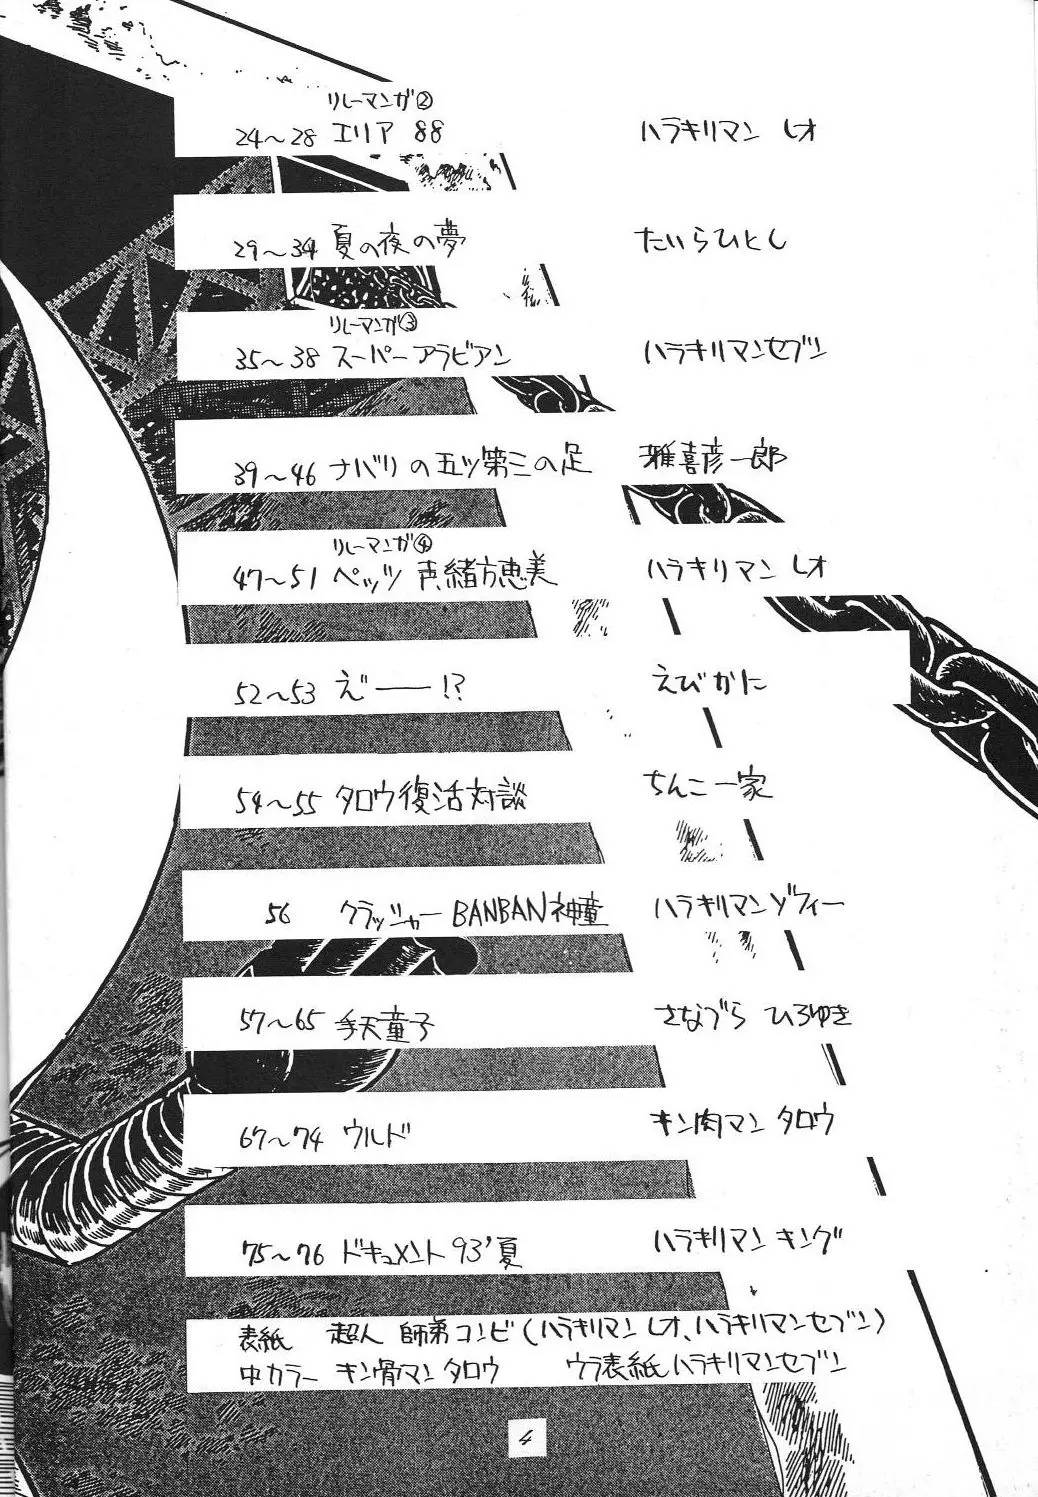 リレーマンガ②
24〜28 エリア 88 ハラキリマン レオ
29〜34 夏の夜の夢 たいらひとし
リレーマンガ③
35〜38 スーパーアラビアン ハラキリマンセブン
39〜46 ナバリの五ツ第三の足 雅喜彦一郎
リレーマンガ④
47〜51 ペッツ 声、緒方恵美 ハラキリマン レオ
52〜53 え゛――!? えびかに
54〜55 タロウ復活対談 ちんこ一家
56 クラッシャーBANBAN神童 ハラキリマンゾフィー
57〜65 手天童子 さなづら ひろゆき
67〜74 ウルド キン肉マン タロウ
75〜76 ドキュメント 93'夏 ハラキリマン キング
表紙 超人 師弟コンビ(ハラキリマン レオ、ハラキリマンセブン)
中カラー キン骨マン タロウ ウラ表紙 ハラキリマンセブン
4